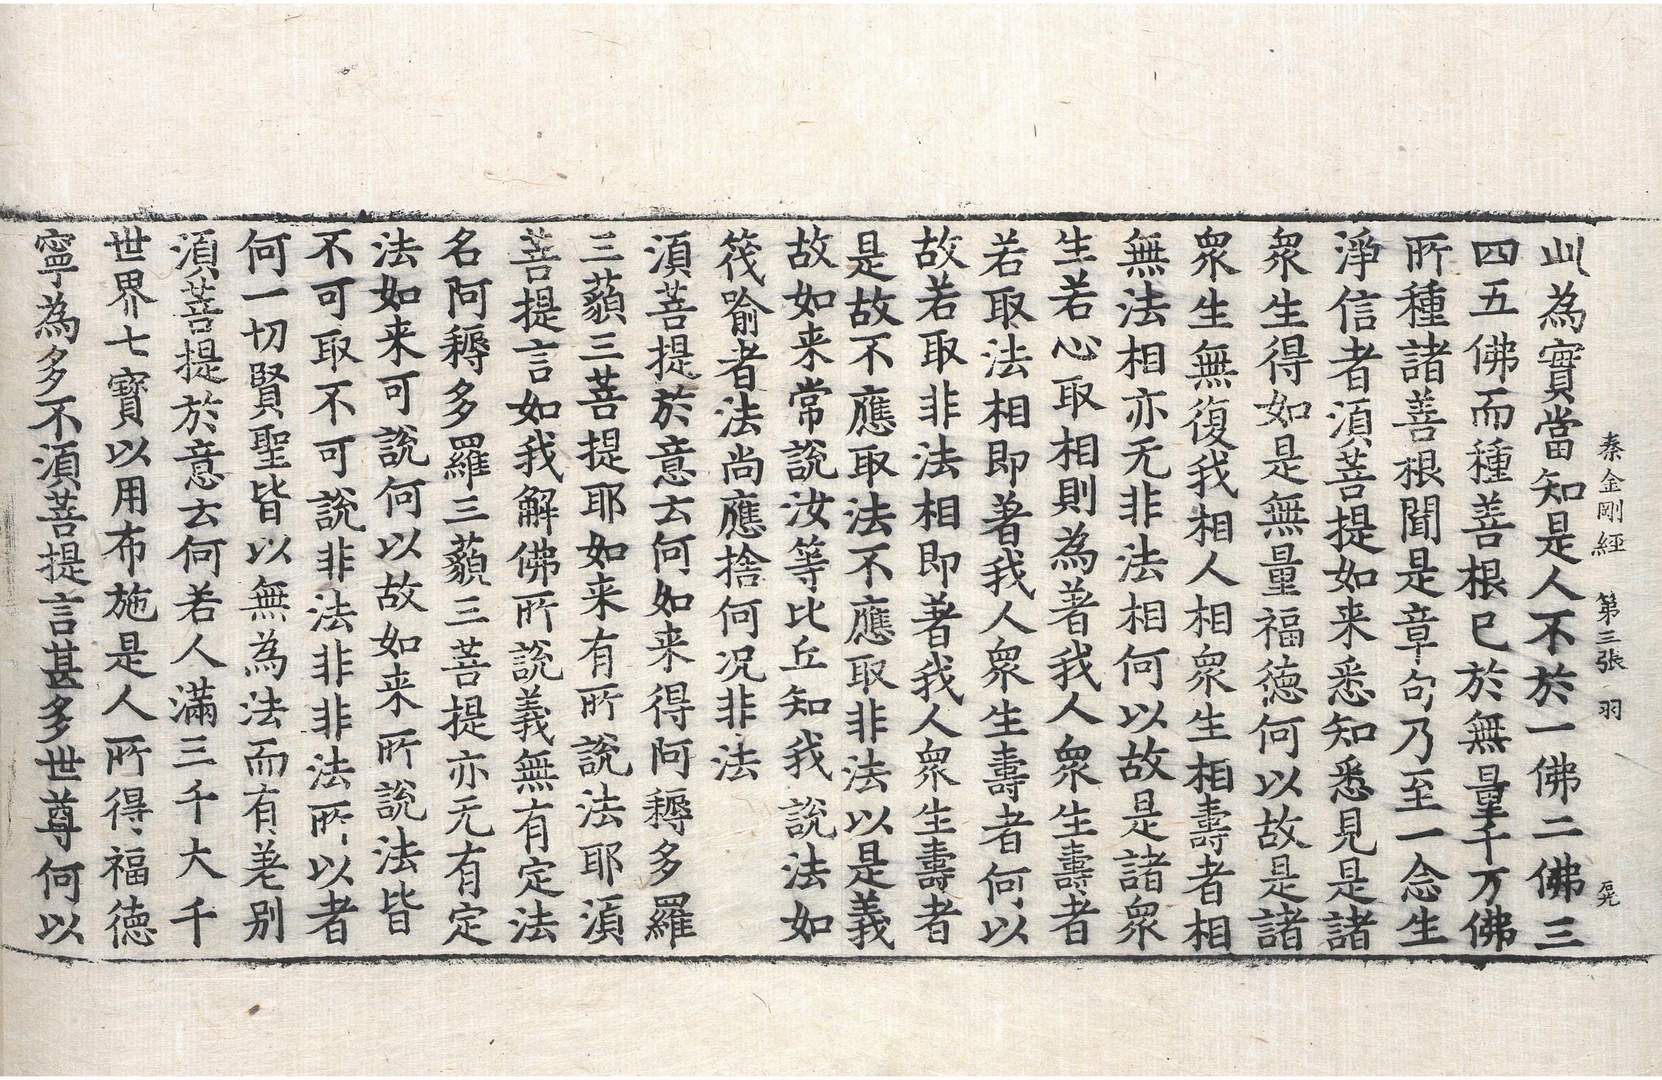 秦金剛經 第三張 羽
此為實當知是人不於一佛二佛三
四五佛而種善根已於無量千万佛
所種諸善根聞是章句乃至一念生
淨信者湏菩提如来悉知悉見是諸
眾生得如是無量福德何以故是諸
眾生無復我相人相眾生相壽者相
無法相亦无非法相何以故是諸眾
生若心取相則為著我人眾生壽者
若取法相即著我人眾生壽者何以
故若取非法相即著我人眾生壽者
是故不應取法不應取非法以是義
故如来常說汝等比丘知我說法如
筏喻者法尚應捨何况非法
湏菩提於意云何如来得阿耨多羅
三藐三菩提耶如来有所說法耶湏
菩提言如我解佛所說義無有定法
名阿耨多羅三藐三菩提亦无有定
法如来可說何以故如来所說法皆
不可取不可說非法非非法所以者
何一切賢聖皆以無為法而有差别
湏菩提於意云何若人滿三千大千
世界七寶以用布施是人所得福德
寧為多不湏菩提言甚多世尊何以